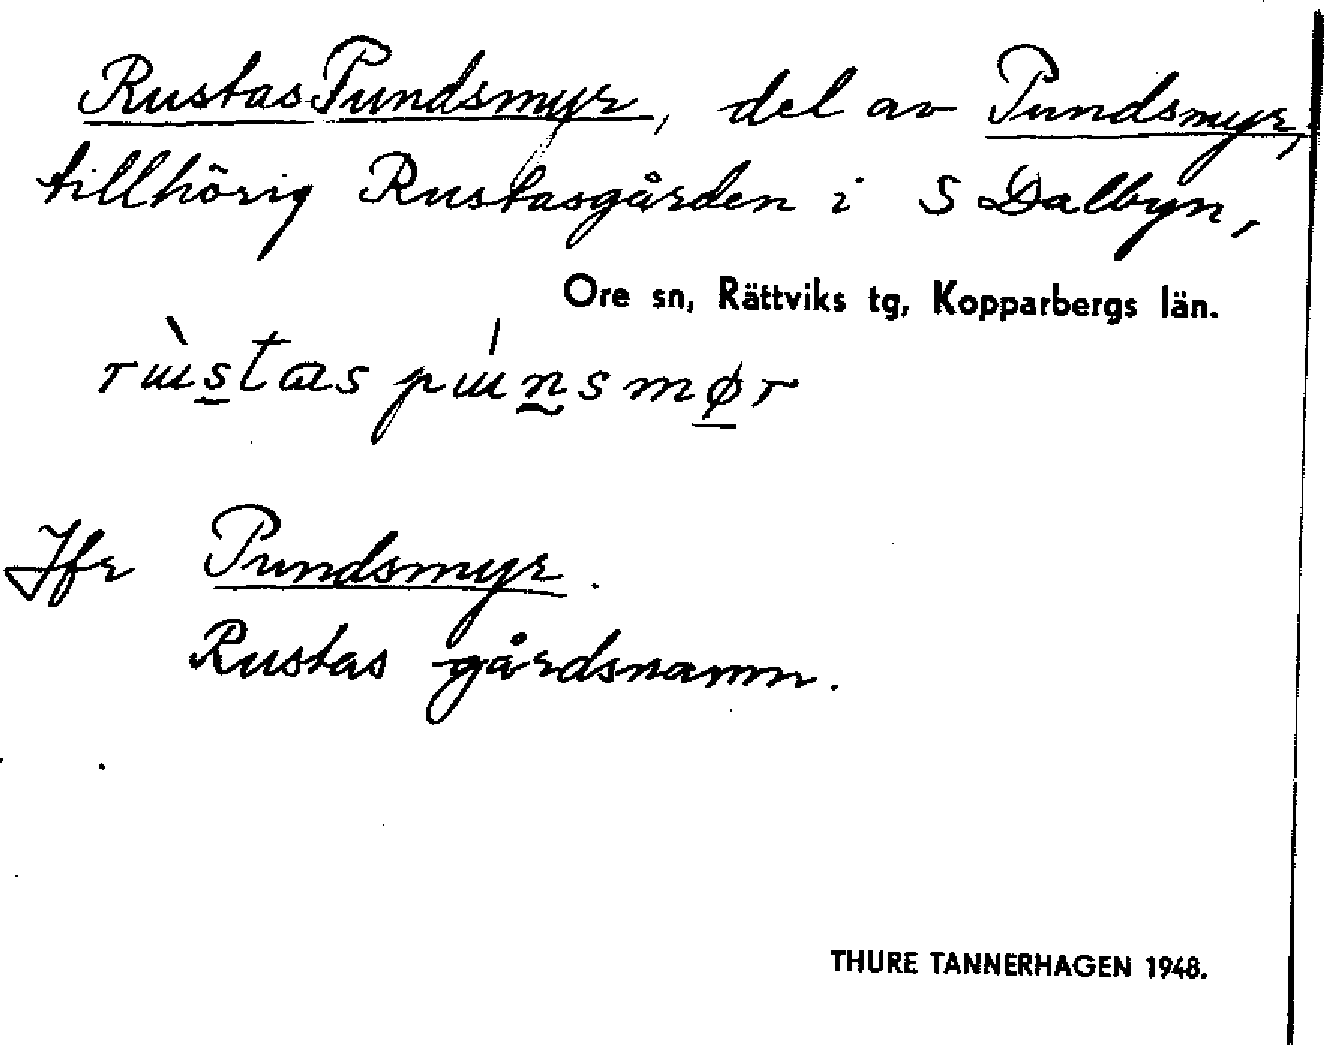 Rustas Pundsmyr, del av Pundsmyr,
tillhörig Rustasgården i S Dalbyn,
Ore sn, Rättviks tg, Kopparbergs län.
rɯ̀s̱tas pɯ́n̰smø̱r
Jfr Pundsmyr.
Rustas gårdsnamn.
THURE TANNERHAGEN 1948.